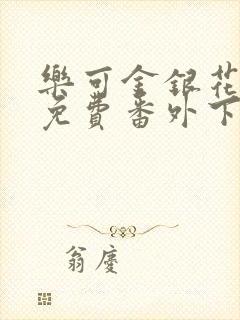 樂可金銀花
免費番外下
翁慶